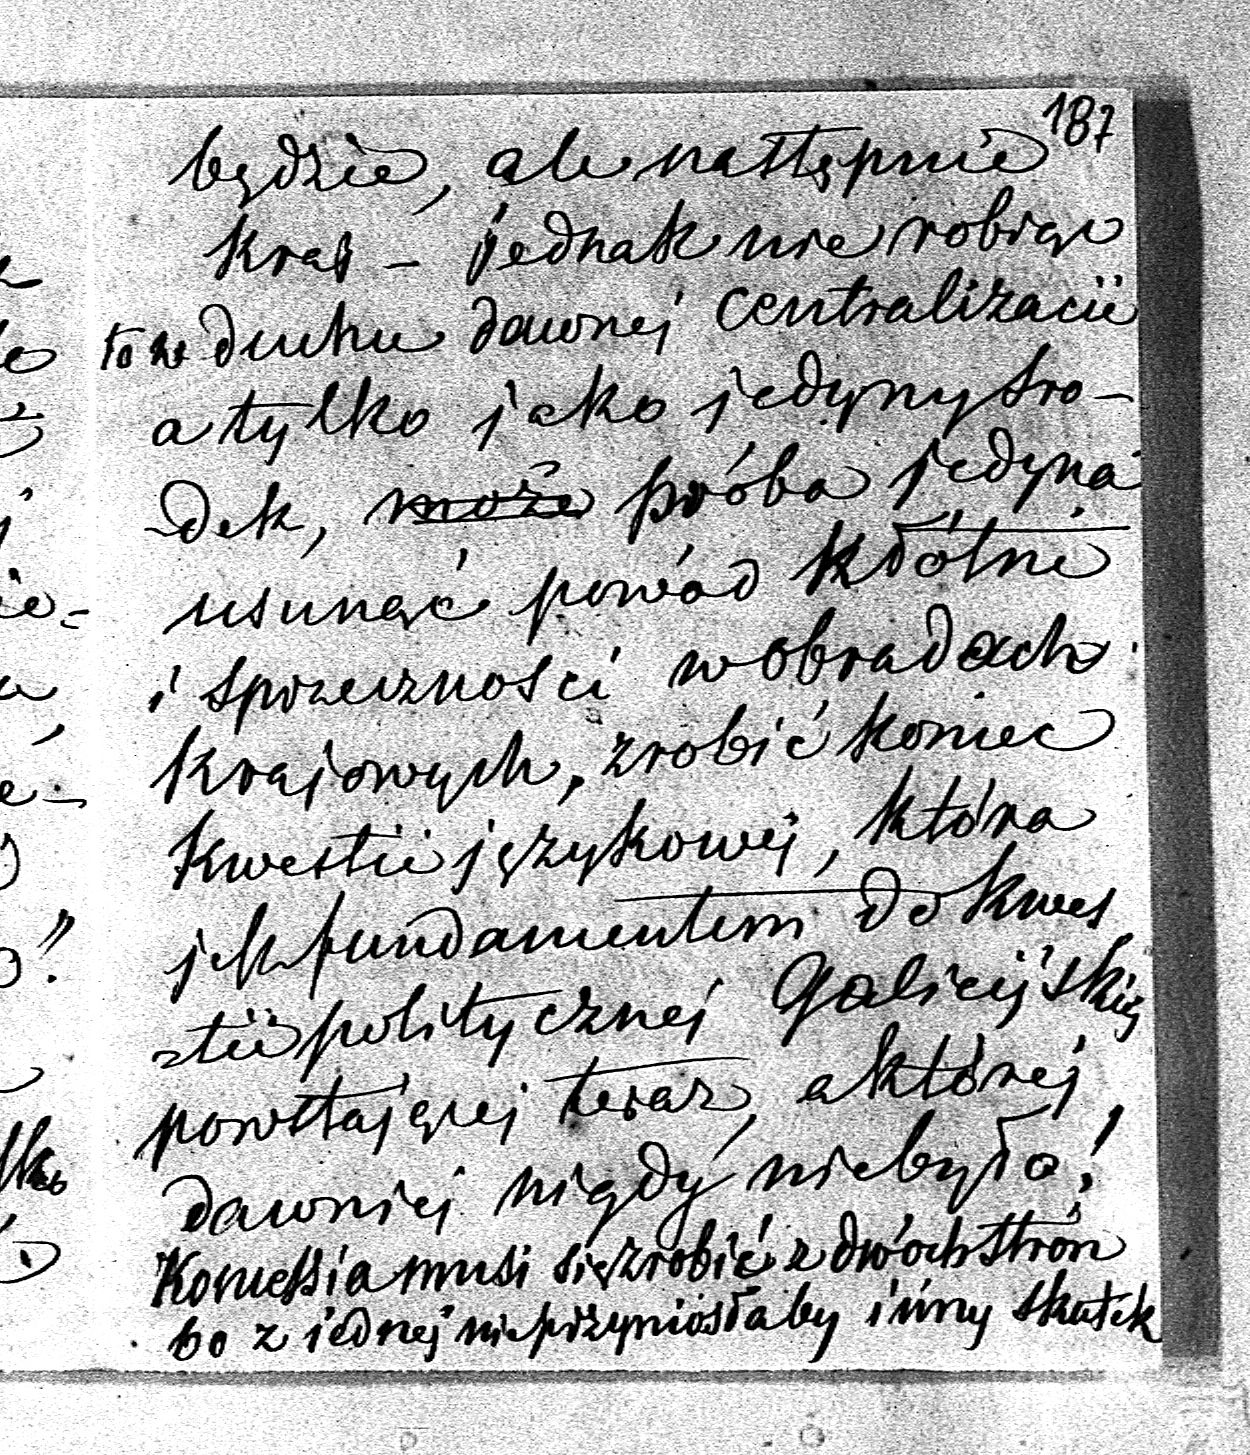 187
będzie, ale następnie
kraj – jednak nie robiąc
to w duchu dawnej centralizacii
a tylko jako jedyny śro-
dek, może próba jedyna
usunąć powód kłótni
i sprzeczności w obradach
krajowych, zrobić koniec
kwestii językowej, która
jest fundamentem do kwes
tii politycznej Galicijskiej
powstającej teraz, a której
dawniej nigdy niebyło!
musi się zrobić z dwóch stron
bo z jednej nie przyniosłaby inny skutek